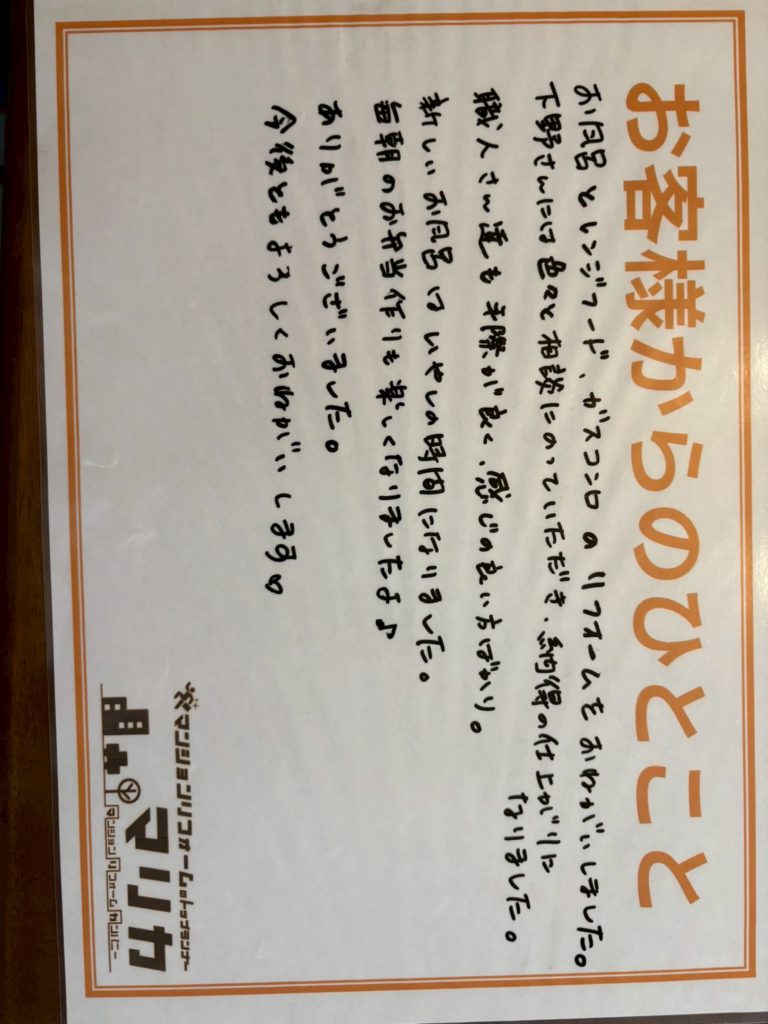 お客様からのひとこと
お風呂とレンジフード、ガスコンロのリフォームをおねがいしました。
下野さんには色々と相談にのっていただき、納得の仕上がりに
なりました。
職人さん達も手際が良く、感じの良い方ばかり。
新しいお風呂はいやしの時間になりました。
毎朝のお弁当作りも楽しくなりましたよ♪
ありがとうございました。
今後ともよろしくおねがいします♡
マンションリフォームのトップランナー
マリカ
マンション リフォーム カンパニー